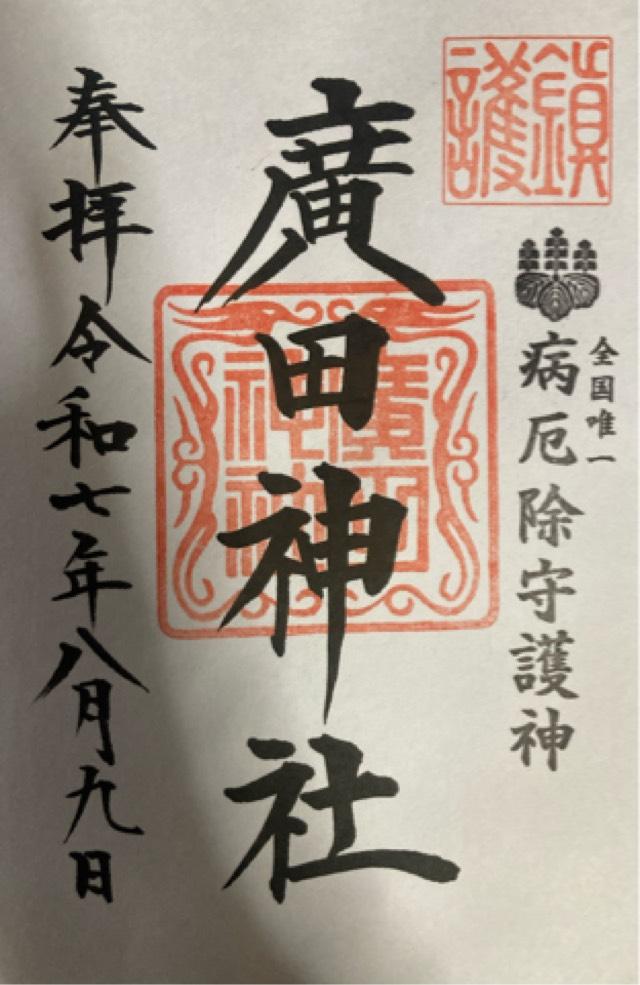 鎮護
全国唯一
病厄除守護神
廣田神社
廣田神社
奉拝令和七年八月九日